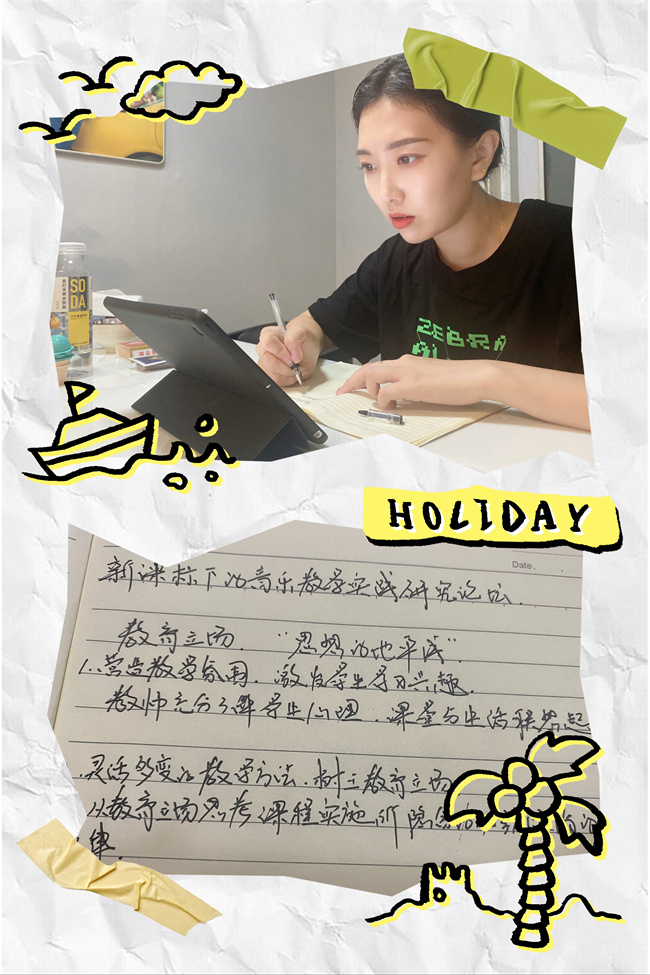 SO
DA
ZEBRA
HOLIDAY
Date.
新课标下的音乐教学实践研究论坛.
教育立场. "思想的地平线".
1.营造教学氛围.激发学生学习兴趣.
教师充分了解学生心理.课堂与生活联系起
.灵活多变的教学方法.树立教育立场
从教育立场思考课程实施所隐含的
律.